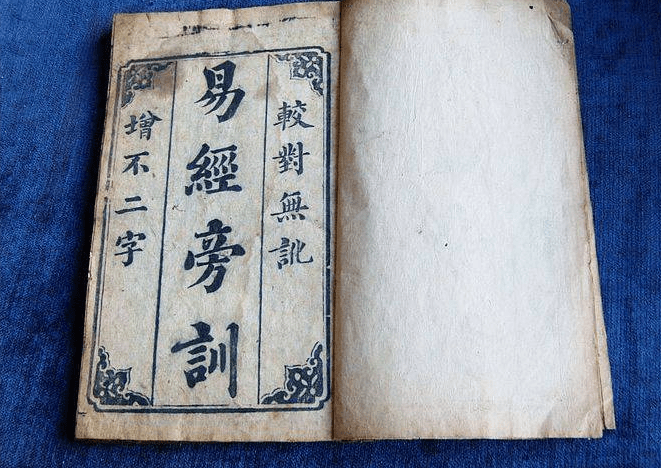 較對無訛
易經旁訓
增不二字